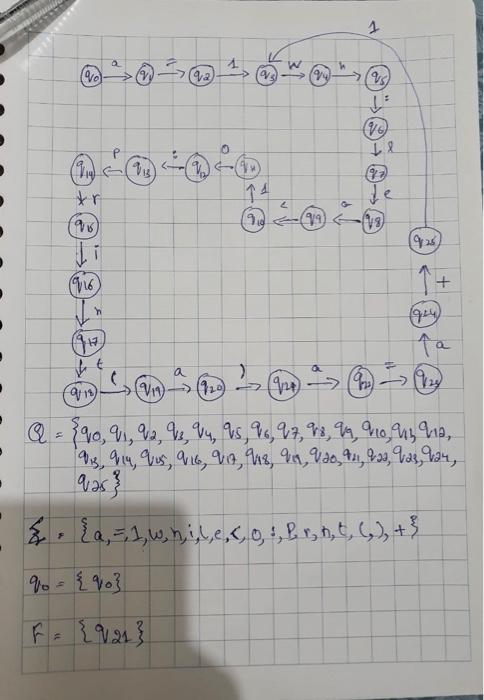 1
q0 a q1 = q2 1 q3 w q4 h q5
i
q6
l
q7
e
q14 P q13 : q12 0 q11
1
r q10 < q9 a q8
q15 q25
i
q16 + 
n q24
q17 a
t
q18 ( q19 a q20 ) q21 a q22 = q23
Q = {q0, q1, q2, q3, q4, q5, q6, q7, q8, q9, q10, q11, q12,
q13, q14, q15, q16, q17, q18, q19, q20, q21, q22, q23, q24,
q25}
Σ = {a, =, 1, w, h, i, l, e, <, 0, :, P, r, n, t, (, ), +}
q0 = {q0}
F = {q21}